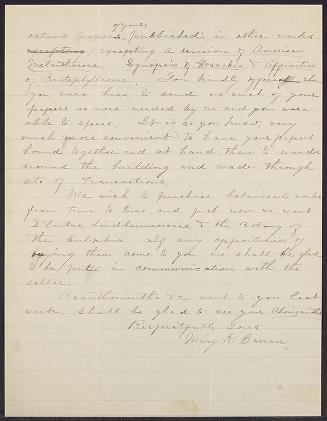 of yours
octavo papers, published in other works
excepting a revision of American
Melanthaceae, Synopsis of Hosackia & Affinities
of Ceratophyllaceae. You kindly offered when
you were here to send us such of your
papers as were needed by us and you were
able to spare. It is as you know, very
much more convenient to have your papers
bound together and at hand, than to wander
around the building and wade through
sets of Transactions.
We wish to purchase botanical works
from time to time and just now we want
Plantae Lindheimerianae & the Botany of
the Sulphur. If any opportunities of
buying them come to you we shall be glad
to be put in communication with the
seller.
Acanthomintha &c went to you last
week. Shall be glad to see your Chorizanthe
Respectfully Yours
Mary K. Curran.